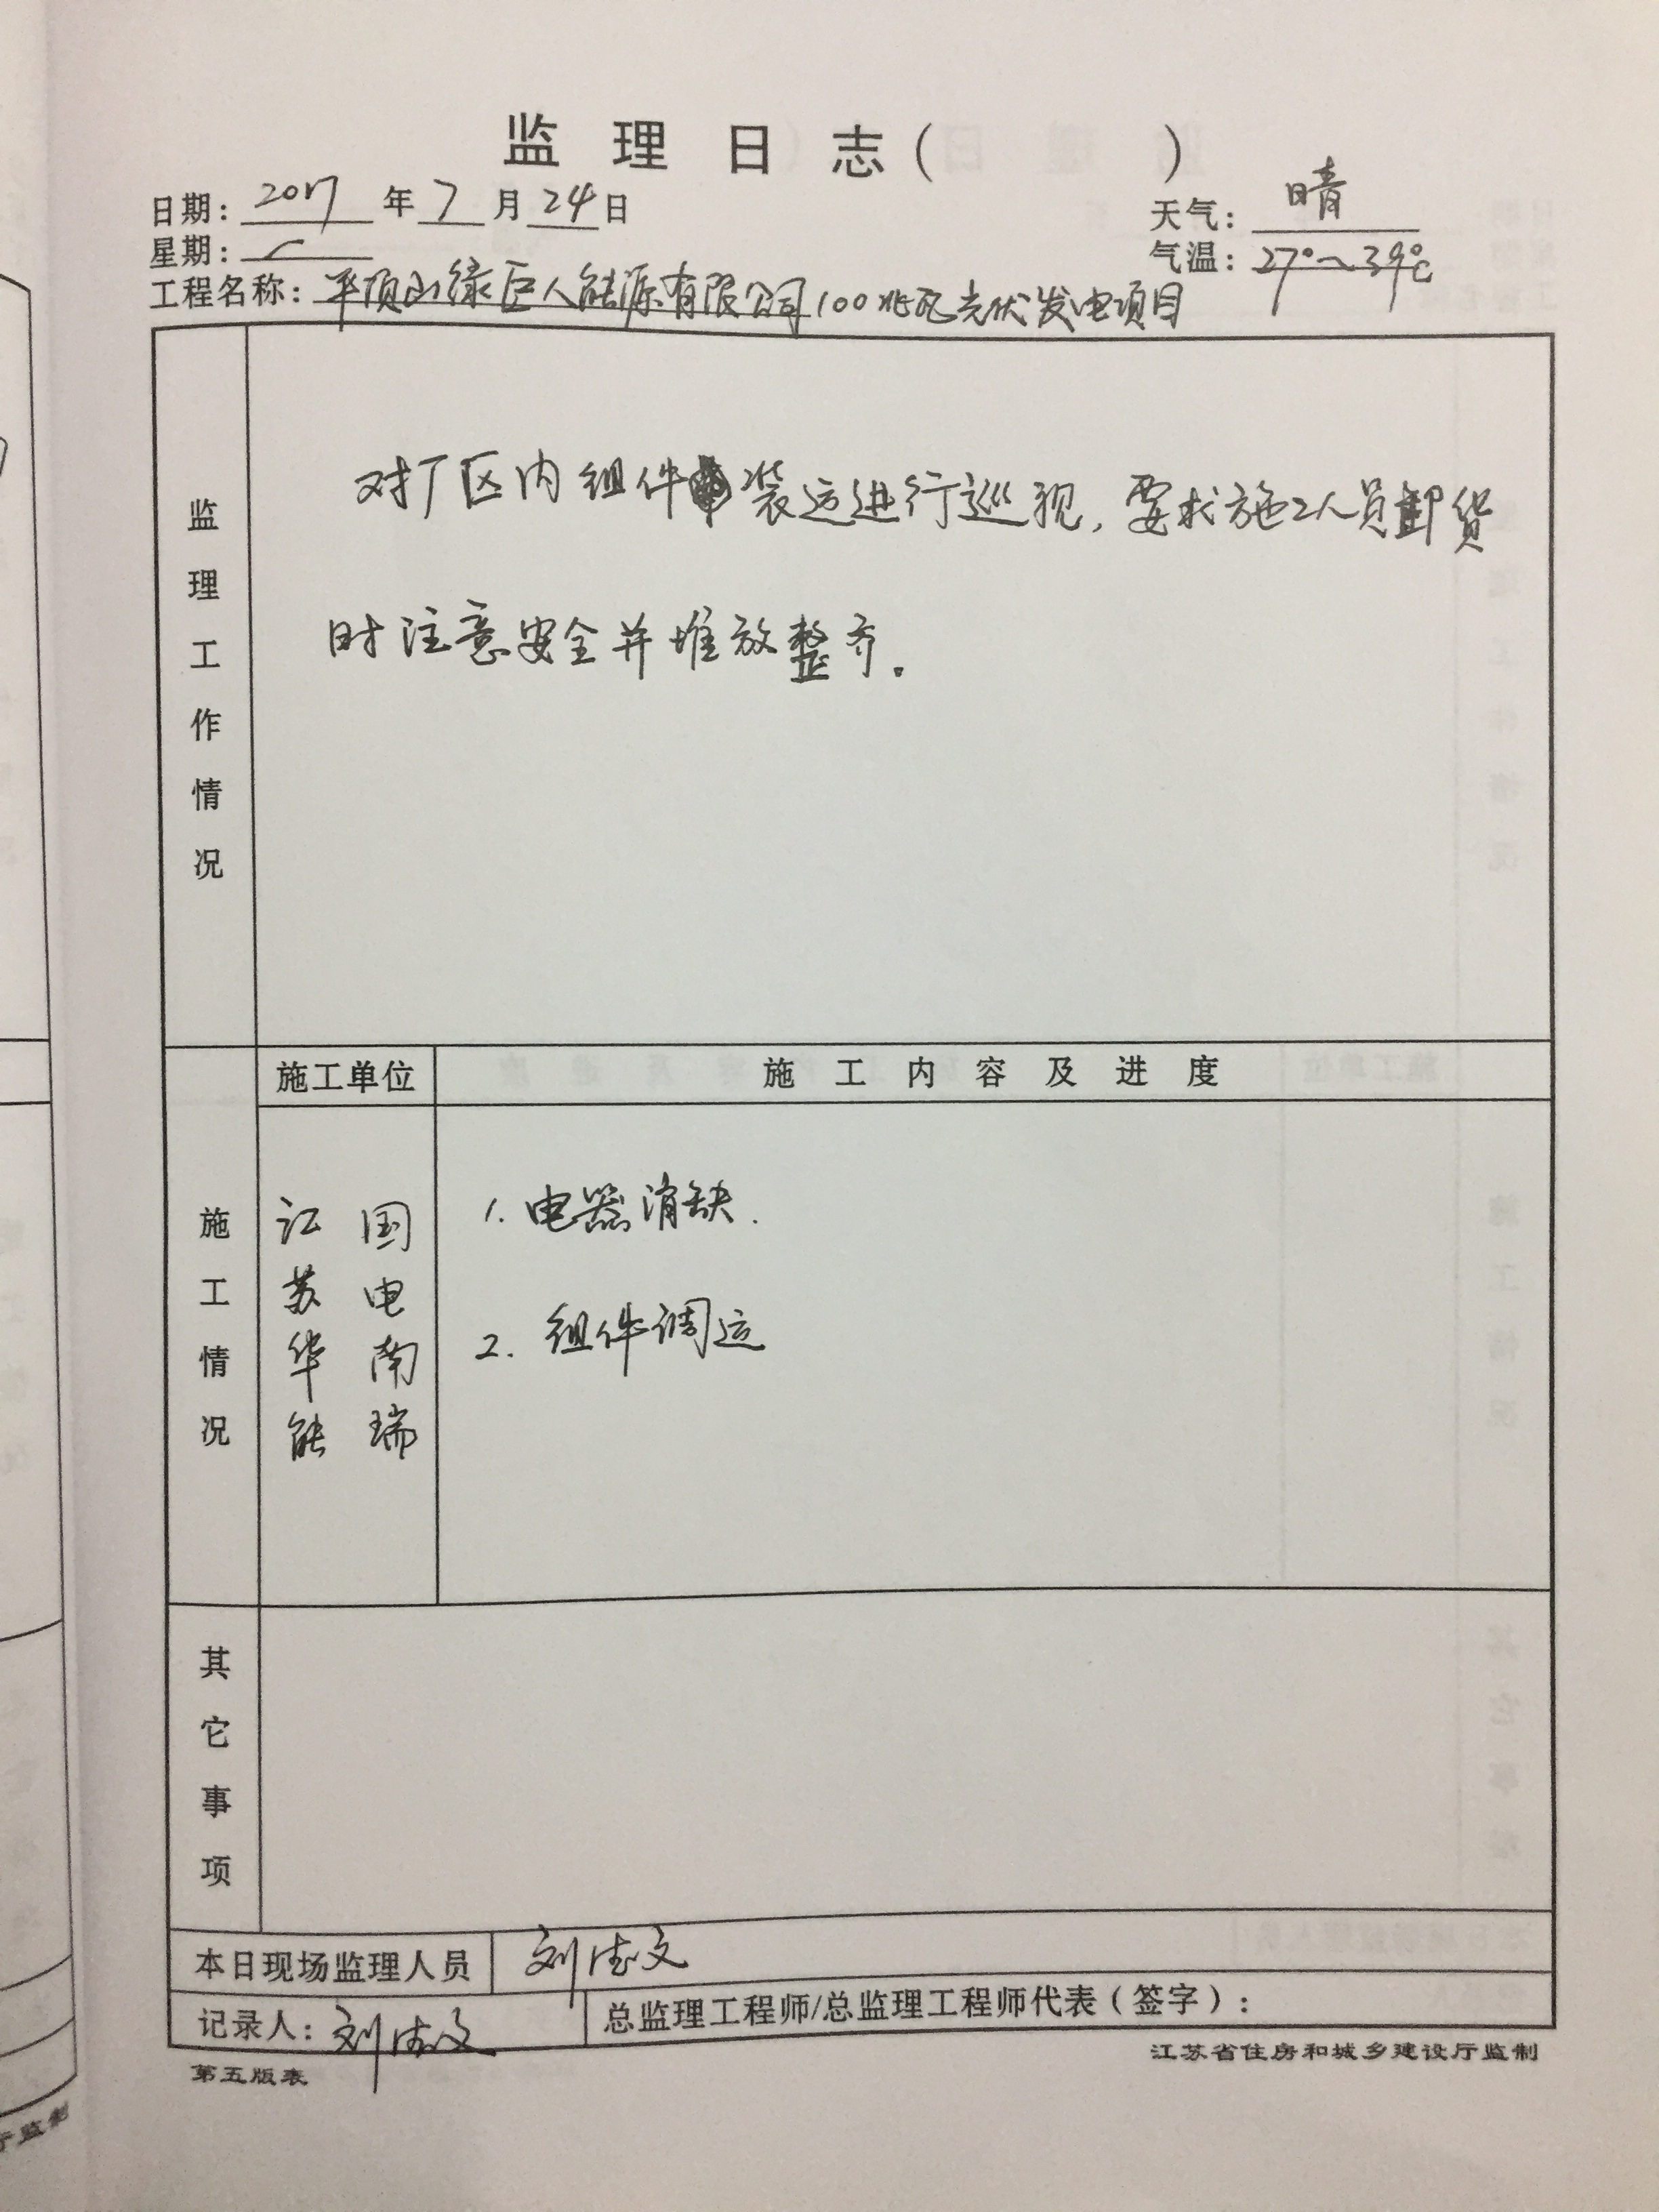 监理日志（　）
日期：2017年7月24日　天气：晴
星期：一　气温：27°~39℃
工程名称：平顶山绿巨人能源有限公司100兆瓦光伏发电项目
监理工作情况
对厂区内组件装运进行巡视，要求施工人员卸货
时注意安全并堆放整齐。
施工情况
施工单位　施工内容及进度
江苏华能
国电南瑞
1. 电器消缺.
2. 组件调运
其它事项
本日现场监理人员　刘　文
记录人：刘　文　总监理工程师/总监理工程师代表（签字）：
第五版表　江苏省住房和城乡建设厅监制
厅监制